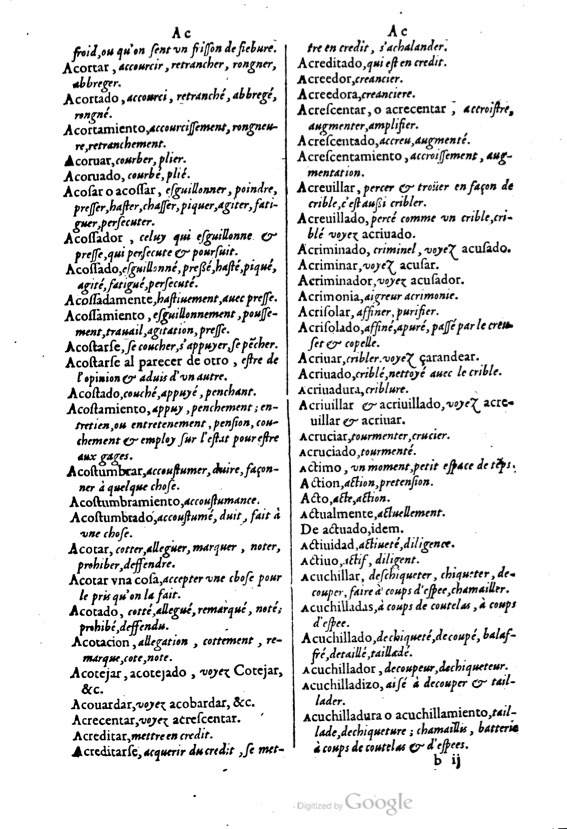 Ac
froid, ou qu'on sent vn frisson de fiebure.
Acortar, accourcir, retrancher, rongner,
abbreger.
Acortado, accourci, retranché, abbregé,
rongné.
Acortamiento, accourcissement, rongneu-
re, retranchement.
Acoruar, courber, plier.
Acoruado, courbé, plié.
Acosar o acossar, esguillonner, poindre,
presser, haster, chasser, piquer, agiter, fati-
guer, persecuter.
Acossador, celuy qui esguillonne &
presse, qui persecute & poursuit.
Acossado, esguillonné, pressé, hasté, piqué,
agité, fatigué, persecuté.
Acossadamente, hastiuement, auec presse.
Acossamiento, esguillonnement, pousse-
ment, trauail, agitation, presse.
Acostarse, se coucher, s'appuyer, se pëcher.
Acostarse al parecer de otro, estre de
l'opinion & aduis d'vn autre.
Acostado, couché, appuyé, penchant.
Acostamiento, appuy, penchement; en-
tretien, ou entretenement, pension, cou-
chement & employ sur l'estat pour estre
aux gages.
Acostumbrar, accoustumer, duire, façon-
ner à quelque chose.
Acostumbramiento, accoustumance.
Acostumbrado, accoustumé, duit, fait à
vne chose.
Acotar, cotter, alleguer, marquer, noter,
prohiber, deffendre.
Acotar vna cosa, accepter vne chose pour
le pris qu'on la fait.
Acotado, cotté, allegué, remarqué, noté;
prohibé, deffendu.
Acotacion, allegation, cottement, re-
marque, cote, note.
Acotejar, acotejado, voyez Cotejar,
&c.
Acouardar, voyez acobardar, &c.
Acrecentar, voyez acrescentar.
Acreditar, mettre en credit.
Acreditarse, acquerir du credit, se met-
Ac
tre en credit, s'achalander.
Acreditado, qui est en credit.
Acreedor, creancier.
Acreedora, creanciere.
Acrescentar, o acrecentar, accroistre,
augmenter, amplifier.
Acrescentado, accreu, augmenté.
Acrescentamiento, accroissement, aug-
mentation.
Acreuillar, percer & troüer en façon de
crible, c'est aussi cribler.
Acreuillado, percé comme vn crible, cri-
blé voyez acriuado.
Acriminado, criminel, voyez acusado.
Acriminar, voyez acusar.
Acriminador, voyez acusador.
Acrimonia, aigreur acrimonie.
Acrisolar, affiner, purifier.
Acrisolado, affiné, apuré, passé par le creu-
set & copelle.
Acriuar, cribler. voyez çarandear.
Acriuado, criblé, nettoyé auec le crible.
Acriuadura, criblure.
Acriuillar & acriuillado, voyez acre-
uillar & acriuar.
Acruciar, tourmenter, crucier.
Acruciado, tourmenté.
Actimo, vn moment, petit espace de tëps.
Action, action, pretension.
Acto, acte, action.
Actualmente, actuellement.
De actuado, idem.
Actiuidad, actiueté, diligence.
Actiuo, actif, diligent.
Acuchillar, deschiqueter, chiqueter, de-
couper, faire à coups d'espee, chamailler.
Acuchilladas, à coups de coutelas, à coups
d'espee.
Acuchillado, dechiqueté, decoupé, balaf-
fré, detaillé, taillade.
Acuchillador, decoupeur, dechiqueteur.
Acuchilladizo, aisé à decouper & tail-
lader.
Acuchilladura o acuchillamiento, tail-
lade, dechiqueture; chamaillis, batterie
à coups de coutelas & d'espees.
b ij
Digitized by Google